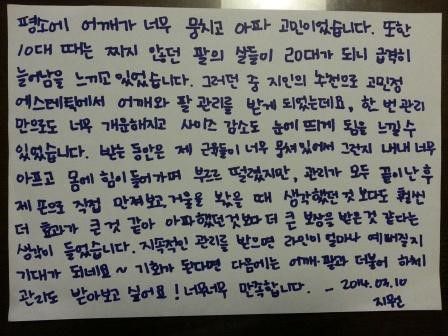 평소에 어깨가 너무 뭉치고 아파 고민이었습니다. 또한
10대 때는 찌지 않던 팔의 살들이 20대가 되니 급격히
늘어남을 느끼고 있었습니다. 그러던 중 지인의 추천으로 고민정
에스테틱에서 어깨와 팔 관리를 받게 되었는데요, 한 번 관리
만으로도 너무 개운해지고 사이즈 감소도 눈에 띄게 됨을 느낄 수
있었습니다. 받는 동안은 제 근육들이 너무 뭉쳐있어서 그런지 내내 너무
아프고 몸에 힘이 들어가며 부르르 떨렸지만, 관리가 모두 끝이 난 후
제 손으로 직접 만져보고, 거울로 봤을 때 생각했던 것 보다도 훨씬
더 효과가 큰 것 같아 아파했던것보다 더 큰 보상을 받은것 같다는
생각이 들었습니다. 지속적인 관리를 받으면 라인이 얼마나 예뻐질지
기대가 되네요~ 기회가 된다면 다음에는 어깨·팔과 더불어 하체
관리도 받아보고 싶어요! 너무너무 만족합니다. - 2014.03.10